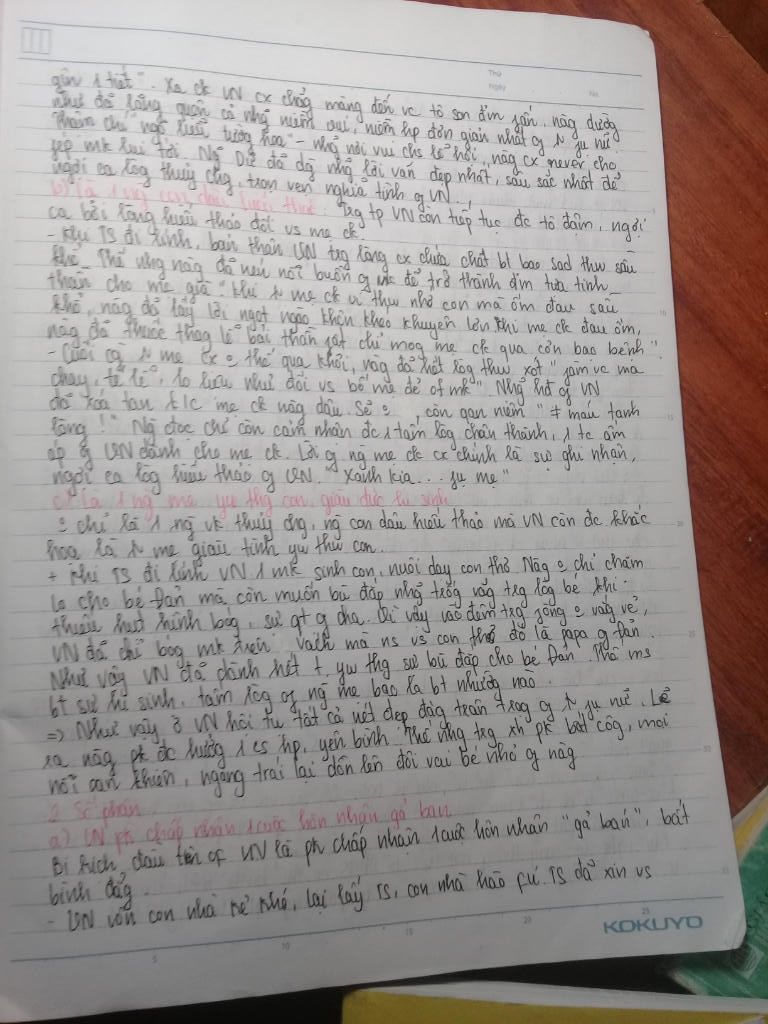 Thứ
Ngày No.
gìn 1 tiết". Xa ck VN cx chẳng màng đến vc tô son điểm phấn, nàng dường
như đã lãng quên cả nhg niềm vui, niềm hp đơn giản nhất of 1 ng pụ nữ
Thậm chí "ngõ liễu tường hoa" - nhg nơi vui chs lễ hội, nàng cx never cho
phép mk lui tới. Ng Dữ đã dg nhg lời văn đẹp nhất, sâu sắc nhất để
ngợi ca lòg thủy chg, trọn vẹn nghĩa tình of VN.
b) Là 1 ng con dâu hiếu thảo. Trg tp VN còn tiếp tục đc tô đậm, ngợi
ca bởi lòng hiếu thảo đối vs mẹ ck.
- Khi TS đi lính, bản thân VN trg lòng cx chứa chất bt bao sad thw sầu
khổ. Thế nhưng nàng đã nén nỗi buồn of mk để trở thành điểm tựa tinh
thần cho mẹ già "khi mẹ ck vì thw nhớ con mà ốm đau sầu
khổ, nàng đã lấy lời ngọt ngào khôn khéo khuyên lơn khi mẹ ck đau ốm,
nàng đã thuốc thang lễ bái thần phật chỉ mog mẹ ck qua cơn bạo bệnh".
- Cuối cg mẹ cx o thể qua khỏi, nàng đã hết lòg thw xót "làm vc ma
chay, tế lễ, lo liệu như đối vs bố mẹ đẻ of mk". Nhg hđ of VN
đã xóa tan k/c mẹ ck nàng dâu. Sẽ o còn quan niệm "≠ máu tanh
lòng!" Ng đọc chỉ còn cảm nhận đc 1 tấm lòg chân thành, 1 tc ấm
áp of VN dành cho mẹ ck. Lời of ng mẹ ck cx chính là sự ghi nhận,
ngợi ca lòg hiếu thảo of VN. "Xanh kia... phụ mẹ"
c) Là 1 ng mẹ yw thg con, giàu đức hi sinh
o chỉ là 1 ng vk thủy chg, ng con dâu hiếu thảo mà VN còn đc khắc
họa là mẹ giàu tình yw thw con.
+ Khi TS đi lính VN 1 mk sinh con, nuôi dạy con thơ. Nàg o chỉ chăm
lo cho bé Đản mà còn muốn bù đắp nhg trống vắng trg lòg bé khi
thiếu hụt hình bóg, sự qt of cha. Vì vậy vào đêm trg phòng o vắng vẻ,
VN đã chỉ bóg mk trên vách mà ns vs con thơ đó là papa of Đản.
Như vậy VN đã dành hết t yw thg sự bù đắp cho bé Đản. Thế ms
bt sự hi sinh, tấm lòg of ng mẹ bao la bt nhường nào.
=> Như vậy ở VN hội tụ tất cả nét đẹp đág trân trọg of pụ nữ. Lẽ
ra nàg pk đc hưởng 1 cs hp, yên bình. Thế nhưng trg xh pk bất côg, mọi
nỗi oan khiên, ngang trái lại dồn lên đôi vai bé nhỏ of nàg
2. Số phận
a) VN ph chấp nhận 1 cuộc hôn nhân gả bán
Bi kịch đầu tiên of VN là ph chấp nhận 1 cuộc hôn nhân "gả bán", bất
bình đẳg.
- VN vốn con nhà kẻ khó, lại lấy TS, con nhà hào fú. TS đã xin vs
KOKUYO